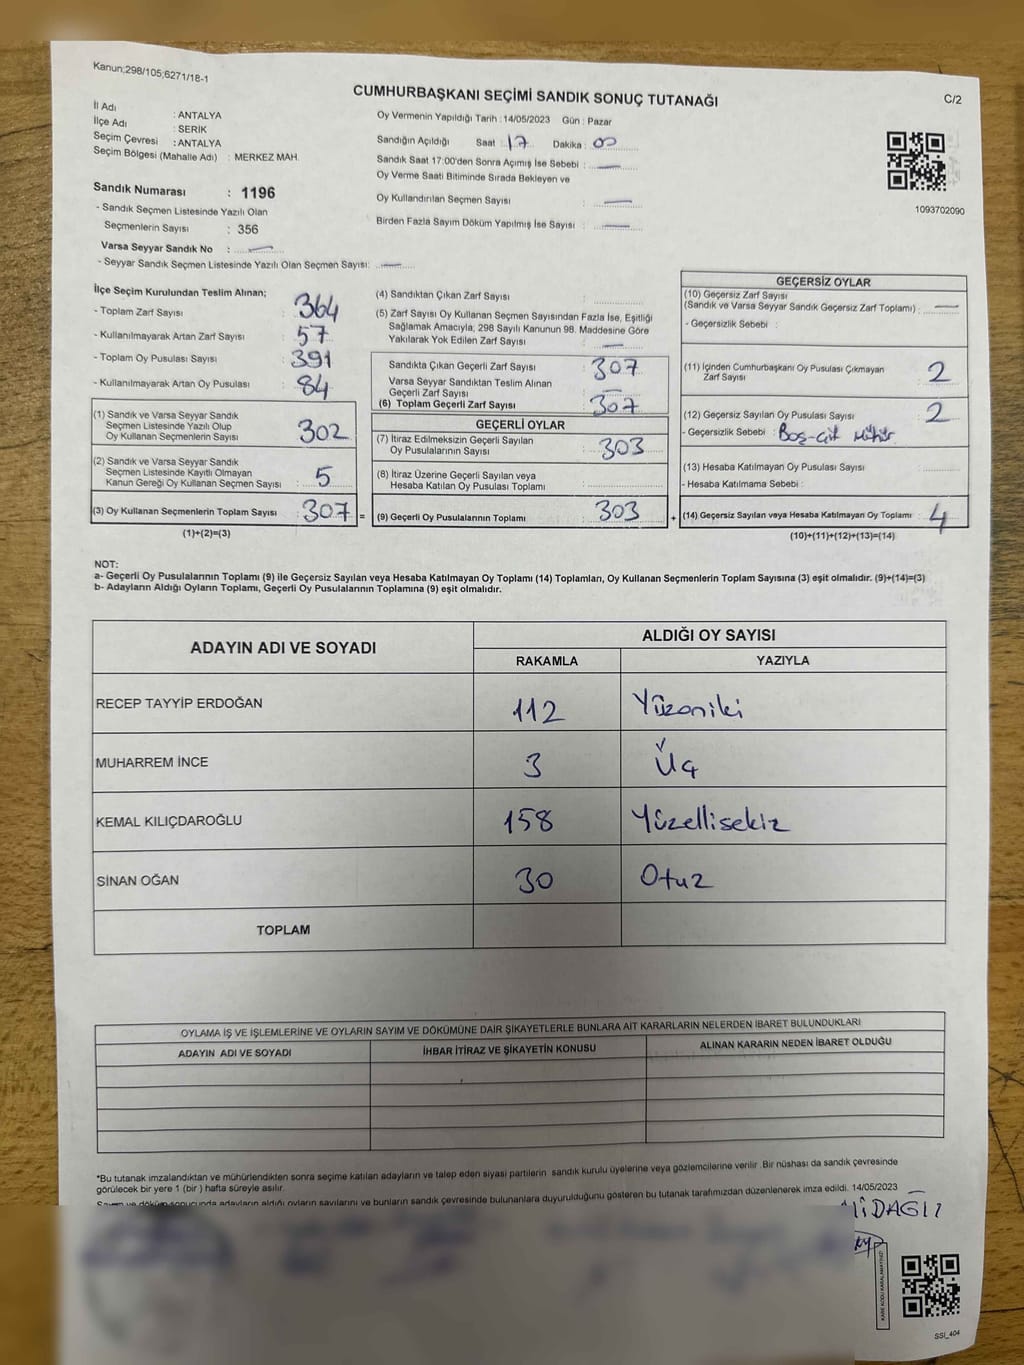 Kanun;298/105;6271/18-1
CUMHURBAŞKANI SEÇİMİ SANDIK SONUÇ TUTANAĞI
C/2
İl Adı : ANTALYA
İlçe Adı : SERİK
Seçim Çevresi : ANTALYA
Seçim Bölgesi (Mahalle Adı) : MERKEZ MAH.
Sandık Numarası : 1196
- Sandık Seçmen Listesinde Yazılı Olan
Seçmenlerin Sayısı : 356
Varsa Seyyar Sandık No : —
- Seyyar Sandık Seçmen Listesinde Yazılı Olan Seçmen Sayısı: —
Oy Vermenin Yapıldığı Tarih : 14/05/2023 Gün : Pazar
Sandığın Açıldığı Saat : 17 Dakika : 00
Sandık Saat 17:00'den Sonra Açımış İse Sebebi : —
Oy Verme Saati Bitiminde Sırada Bekleyen ve
Oy Kullandırılan Seçmen Sayısı : —
Birden Fazla Sayım Döküm Yapılmış İse Sayısı : —
1093702090
İlçe Seçim Kurulundan Teslim Alınan;
- Toplam Zarf Sayısı : 364
- Kullanılmayarak Artan Zarf Sayısı : 57
- Toplam Oy Pusulası Sayısı : 391
- Kullanılmayarak Artan Oy Pusulası : 84
(1) Sandık ve Varsa Seyyar Sandık
Seçmen Listesinde Yazılı Olup
Oy Kullanan Seçmenlerin Sayısı : 302
(2) Sandık ve Varsa Seyyar Sandık
Seçmen Listesinde Kayıtlı Olmayan
Kanun Gereği Oy Kullanan Seçmen Sayısı : 5
(3) Oy Kullanan Seçmenlerin Toplam Sayısı : 307 =
(1)+(2)=(3)
(4) Sandıktan Çıkan Zarf Sayısı :
(5) Zarf Sayısı Oy Kullanan Seçmen Sayısından Fazla İse, Eşitliği
Sağlamak Amacıyla, 298 Sayılı Kanunun 98. Maddesine Göre
Yakılarak Yok Edilen Zarf Sayısı : —
Sandıkta Çıkan Geçerli Zarf Sayısı : 307
Varsa Seyyar Sandıktan Teslim Alınan
Geçerli Zarf Sayısı : —
(6) Toplam Geçerli Zarf Sayısı : 307
GEÇERLİ OYLAR
(7) İtiraz Edilmeksizin Geçerli Sayılan
Oy Pusulalarının Sayısı : 303
(8) İtiraz Üzerine Geçerli Sayılan veya
Hesaba Katılan Oy Pusulası Toplamı :
(9) Geçerli Oy Pusulalarının Toplamı : 303 +
GEÇERSİZ OYLAR
(10) Geçersiz Zarf Sayısı
(Sandık ve Varsa Seyyar Sandık Geçersiz Zarf Toplamı) : —
- Geçersizlik Sebebi :
(11) İçinden Cumhurbaşkanı Oy Pusulası Çıkmayan
Zarf Sayısı : 2
(12) Geçersiz Sayılan Oy Pusulası Sayısı : 2
- Geçersizlik Sebebi : Boş-Çift Mühür
(13) Hesaba Katılmayan Oy Pusulası Sayısı :
- Hesaba Katılmama Sebebi :
(14) Geçersiz Sayılan veya Hesaba Katılmayan Oy Toplamı : 4
(10)+(11)+(12)+(13)=(14)
NOT:
a- Geçerli Oy Pusulalarının Toplamı (9) ile Geçersiz Sayılan veya Hesaba Katılmayan Oy Toplamı (14) Toplamları, Oy Kullanan Seçmenlerin Toplam Sayısına (3) eşit olmalıdır. (9)+(14)=(3)
b- Adayların Aldığı Oyların Toplamı, Geçerli Oy Pusulalarının Toplamına (9) eşit olmalıdır.
ADAYIN ADI VE SOYADI
ALDIĞI OY SAYISI
RAKAMLA YAZIYLA
RECEP TAYYİP ERDOĞAN 112 Yüzoniki
MUHARREM İNCE 3 Üç
KEMAL KILIÇDAROĞLU 158 Yüzellisekiz
SİNAN OĞAN 30 Otuz
TOPLAM
OYLAMA İŞ VE İŞLEMLERİNE VE OYLARIN SAYIM VE DÖKÜMÜNE DAİR ŞİKAYETLERLE BUNLARA AİT KARARLARIN NELERDEN İBARET BULUNDUKLARI
ADAYIN ADI VE SOYADI İHBAR İTİRAZ VE ŞİKAYETİN KONUSU ALINAN KARARIN NEDEN İBARET OLDUĞU
*Bu tutanak imzalandıktan ve mühürlendikten sonra seçime katılan adayların ve talep eden siyasi partilerin sandık kurulu üyelerine veya gözlemcilerine verilir .Bir nüshası da sandık çevresinde
görülecek bir yere 1 (bir ) hafta süreyle asılır.
Sayım ve döküm sonucunda adayların aldığı oyların sayılarını ve bunların sandık çevresinde bulunanlara duyurulduğunu gösteren bu tutanak tarafımızdan düzenlenerek imza edildi. 14/05/2023
KARE KODU KARALAMAYINIZ!
SSİ_404